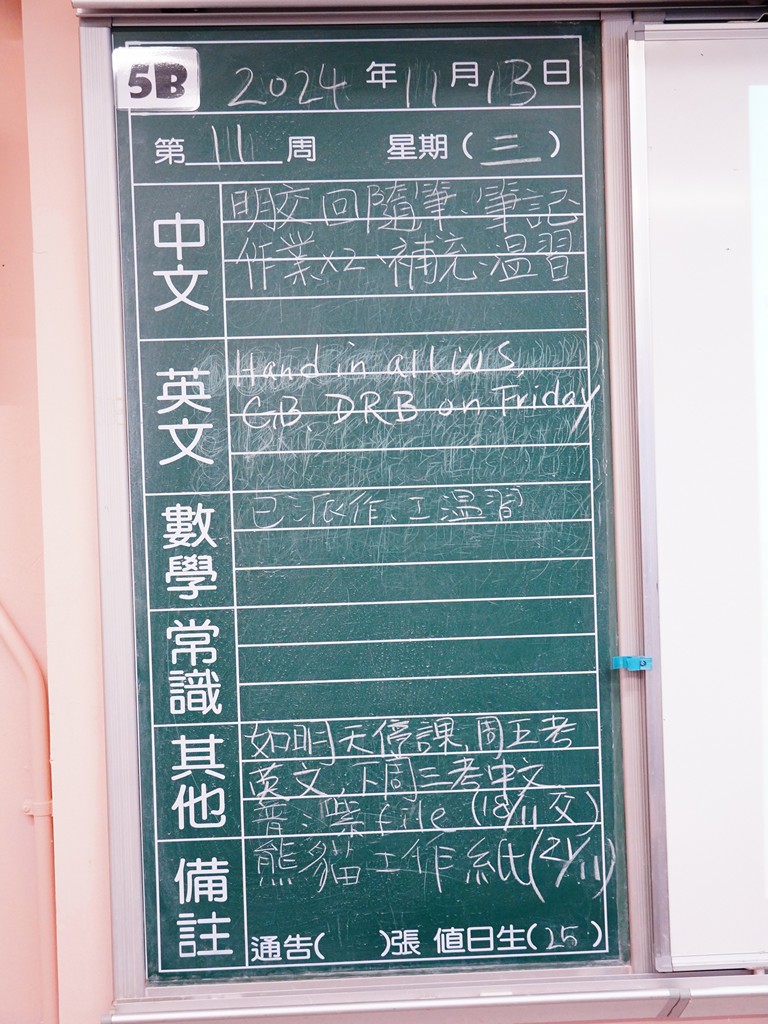 5B
2024 年 11 月 13 日
第 11 周 星期(三)
中文
明交回隨筆、筆記
作業x2、補充、温習
英文
Hand in all WS,
GB, DRB on Friday
數學
已派作、工温習
常識
其他
如明天停課,周五考
英文,下周三考中文
普:紫file (18/11交)
備註
熊貓工作紙(21/11)
通告( )張 值日生(25)